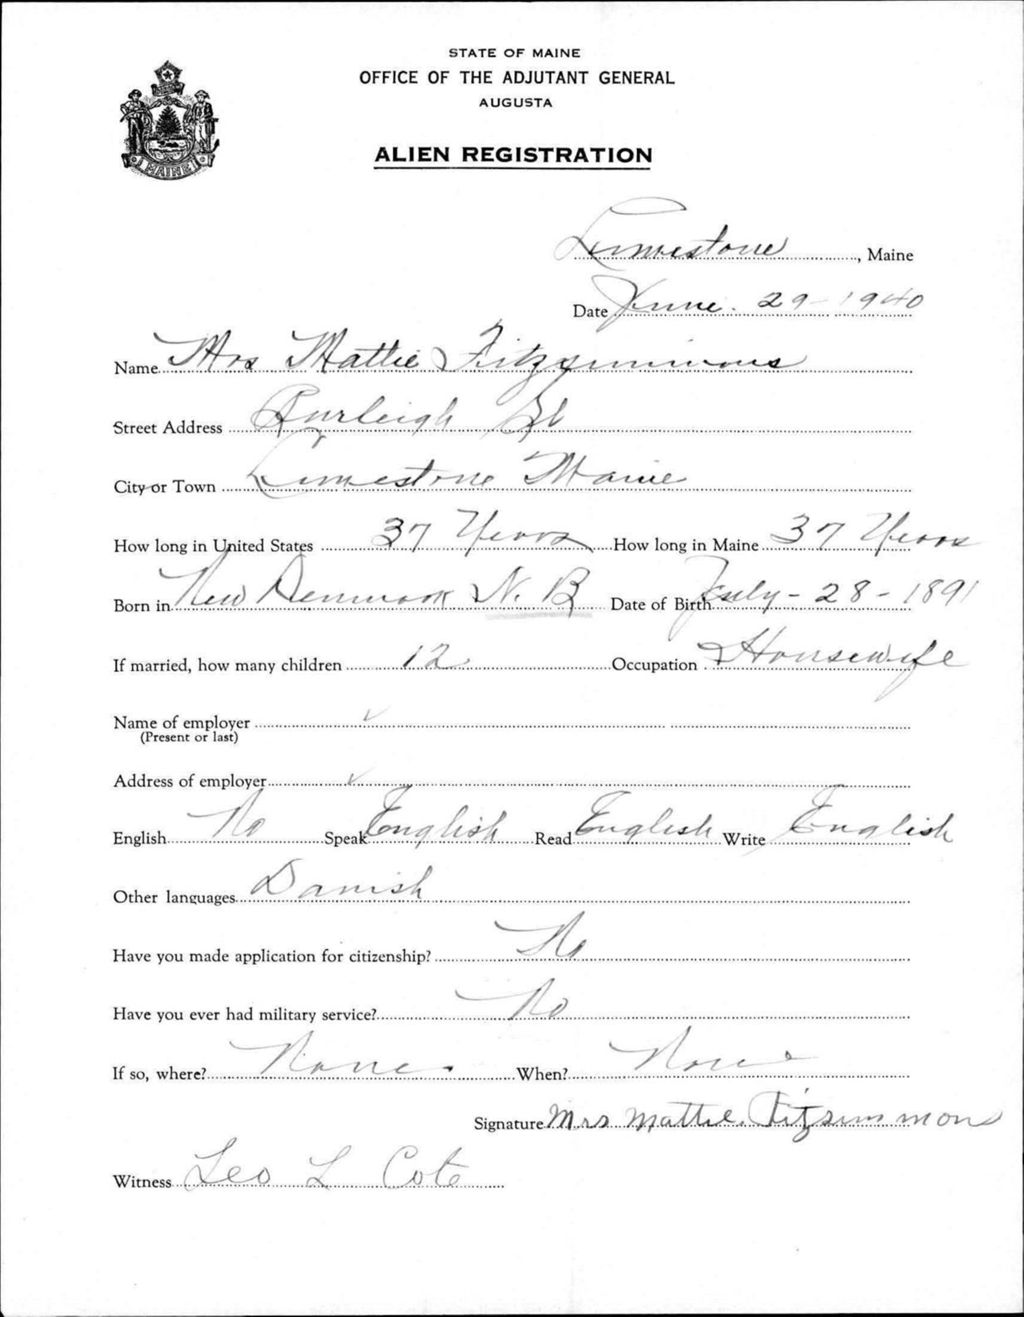 STATE OF MAINE
OFFICE OF THE ADJUTANT GENERAL
AUGUSTA
ALIEN REGISTRATION
MAINE
Limestone, Maine
Date June. 29 - 1940
Name Mrs Mattie Fitzsimmons
Street Address Burleigh St
City or Town Limestone Maine
How long in United States 37 Years How long in Maine 37 Years
Born in New Denmark N. B Date of Birth July - 28 - 1891
If married, how many children 12 Occupation Housewife
Name of employer ✓
(Present or last)
Address of employer ✓
English No Speak English Read English Write English
Other languages Danish
Have you made application for citizenship? No
Have you ever had military service? No
If so, where? None. When? None
Signature Mrs Mattie Fitzsimmons
Witness Leo L Cote